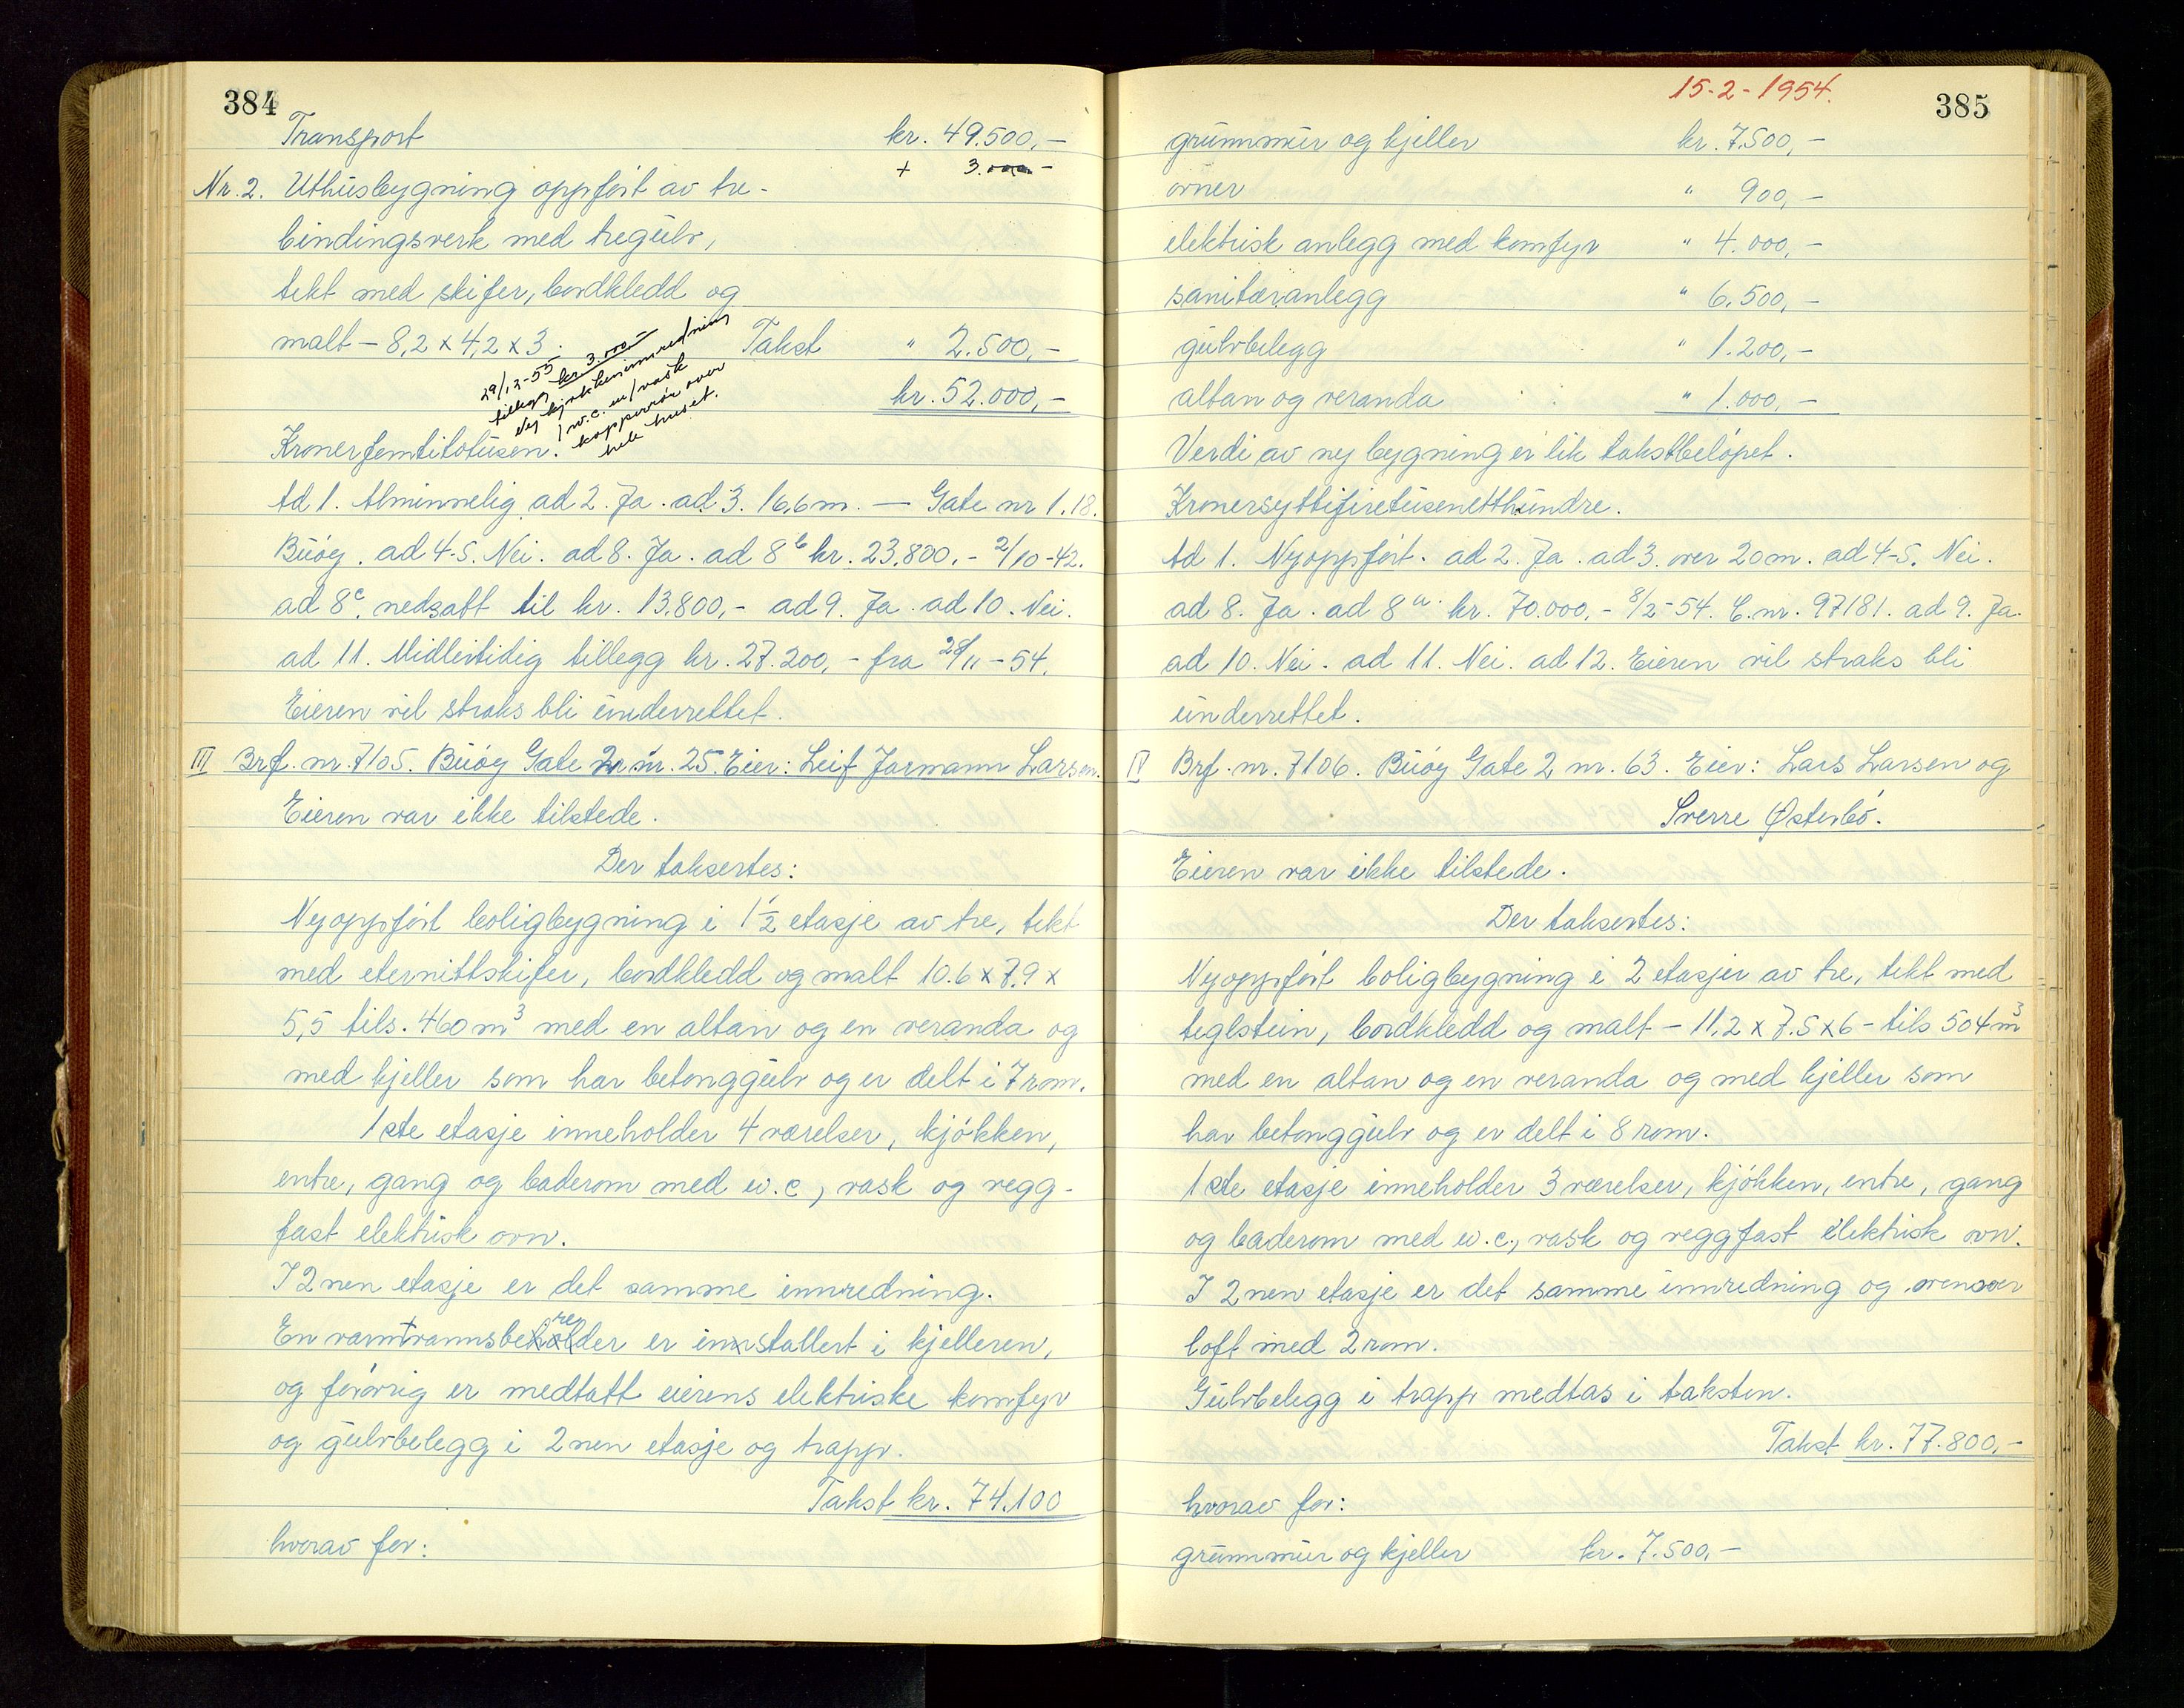 384
Transport kr. 49.500,-
+ 3.000 -
Nr. 2. Uthusbygning oppført av tre-
bindingsverk med tregulv,
tekt med skifer, bordkledd og
malt - 8,2 x 4,2 x 3. Takst " 2.500,-
29/12-55 kr 3.000
tillegg kjøkkeninnredning
Ny w.c. m/vask
kopperrør over
hele huset.
kr. 52.000,-
Kronerfemtitotusen.
Ad 1. Alminnelig ad 2. Ja. ad 3. 16,6 m. - Gate nr 1.18.
Buøy. ad 4-5. Nei. ad 8. Ja. ad 8b kr. 23.800.- 2/10-42.
ad 8c. nedsatt til kr. 13.800,- ad 9. Ja. ad 10. Nei.
ad 11. Midlertidig tillegg kr. 27.200,- fra 28/11-54.
Eieren vil straks bli underrettet.
III Brf. nr. 7105. Buøy Gate 2 nr. 25. Eier: Leif Jarmann Larsen.
Eieren var ikke tilstede.
Der taksertes:
Nyoppført boligbygning i 1½ etasje av tre, tekt
med eternittskifer, bordkledd og malt 10.6 x 7.9 x
5,5 tils. 460 m³ med en altan og en veranda og
med kjeller som har betonggulv og er delt i 7 rom.
1ste etasje inneholder 4 værelser, kjøkken,
entre, gang og baderom med w.c, vask og vegg-
fast elektrisk ovn.
I 2nen etasje er det samme innredning.
En varmtvannsbereder er installert i kjelleren,
og forøvrig er medtatt eierens elektriske komfyr
og gulvbelegg i 2nen etasje og trapp.
Takst kr. 74.100
hvorav for:
15-2-1954.
385
grunnmur og kjeller kr. 7.500,-
ovner " 900,-
elektrisk anlegg med komfyr " 4.000,-
sanitæranlegg " 6.500,-
gulvbelegg " 1.200,-
altan og veranda " 1.000,-
Verdi av ny bygning er lik takstbeløpet.
Kronersyttifiretusenetthundre.
Ad 1. Nyoppført. ad 2. Ja. ad 3. over 20 m. ad 4-5. Nei.
ad 8. Ja. ad 8a. kr. 70.000.- 8/2-54. C.nr. 97181. ad 9. Ja.
ad 10. Nei. ad 11. Nei. ad 12. Eieren vil straks bli
underrettet.
IV Brf. nr. 7106. Buøy Gate 2 nr. 63. Eier: Lars Larsen og
Sverre Østerbø.
Eieren var ikke tilstede.
Der taksertes:
Nyoppført boligbygning i 2 etasjer av tre, tekt med
teglstein, bordkledd og malt - 11.2 x 7.5 x 6 - tils 504 m³
med en altan og en veranda og med kjeller som
har betonggulv og er delt i 8 rom.
1ste etasje inneholder 3 værelser, kjøkken, entre, gang
og baderom med w.c., vask og veggfast elektrisk ovn.
I 2nen etasje er det samme innredning og ovenover
loft med 2 rom.
Gulvbelegg i trapp medtas i taksten.
Takst kr. 77.800,-
hvorav for:
grunnmur og kjeller kr. 7.500,-